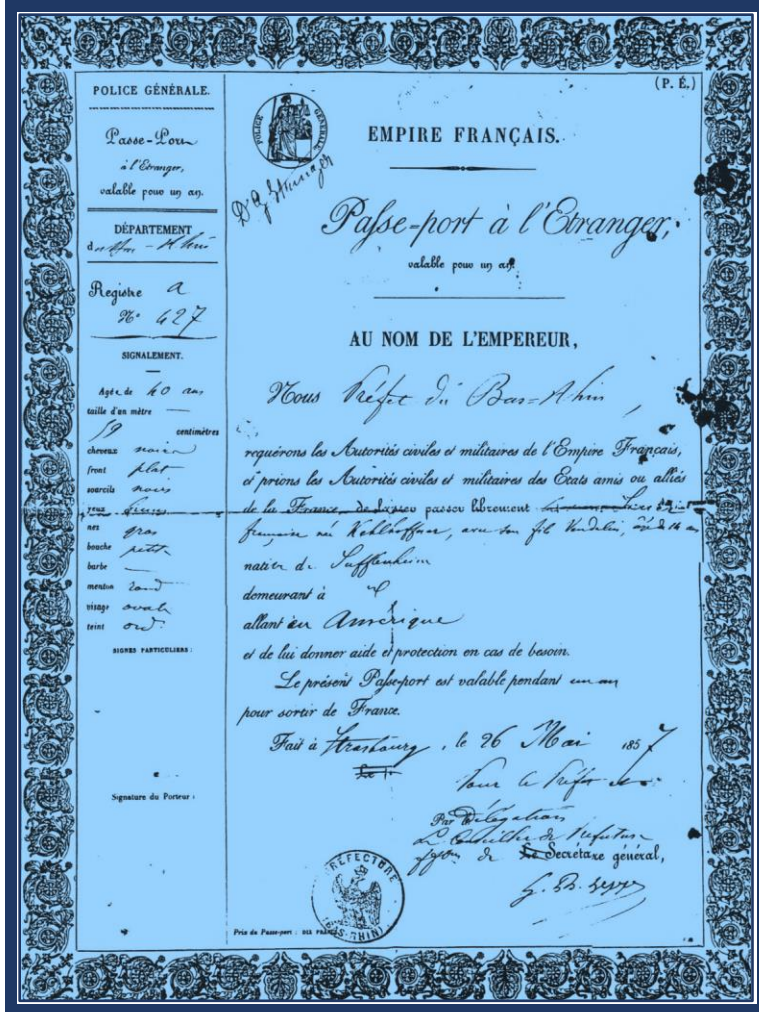 POLICE GÉNÉRALE.
Passe-Port
à l'Etranger,
valable pour un an.
DÉPARTEMENT
du Bas-Rhin
Registre a
No 427
SIGNALEMENT.
Agée de 40 ans
taille d'un mètre —
59 centimètres
cheveux noirs
front plat
sourcils noirs
yeux
nez gros
bouche petite
barbe —
menton rond
visage ovale
teint ord.
SIGNES PARTICULIERS :
Signature du Porteur :
(P. É.)
POLICE GÉNÉRALE
EMPIRE FRANÇAIS.
Passe-port à l'Etranger,
valable pour un an.
AU NOM DE L'EMPEREUR,
Nous Préfet du Bas-Rhin
requérons les Autorités civiles et militaires de l'Empire Français,
et prions les Autorités civiles et militaires des Etats amis ou alliés
de la France, de laisser passer librement
née avec son fils Vendelin, âgé de 14 an
natif de Sufflenheim
demeurant à
allant en Amérique
et de lui donner aide et protection en cas de besoin.
Le présent Passe-port est valable pendant un an
pour sortir de France.
Fait à Strasbourg, le 26 Mai 1857
Pour le Préfet
Par Délégation
Le Conseiller de Préfecture
de Le Secrétaire général,
PREFECTURE
(BAS-RHIN)
Prix du Passe-port : DIX FRANCS